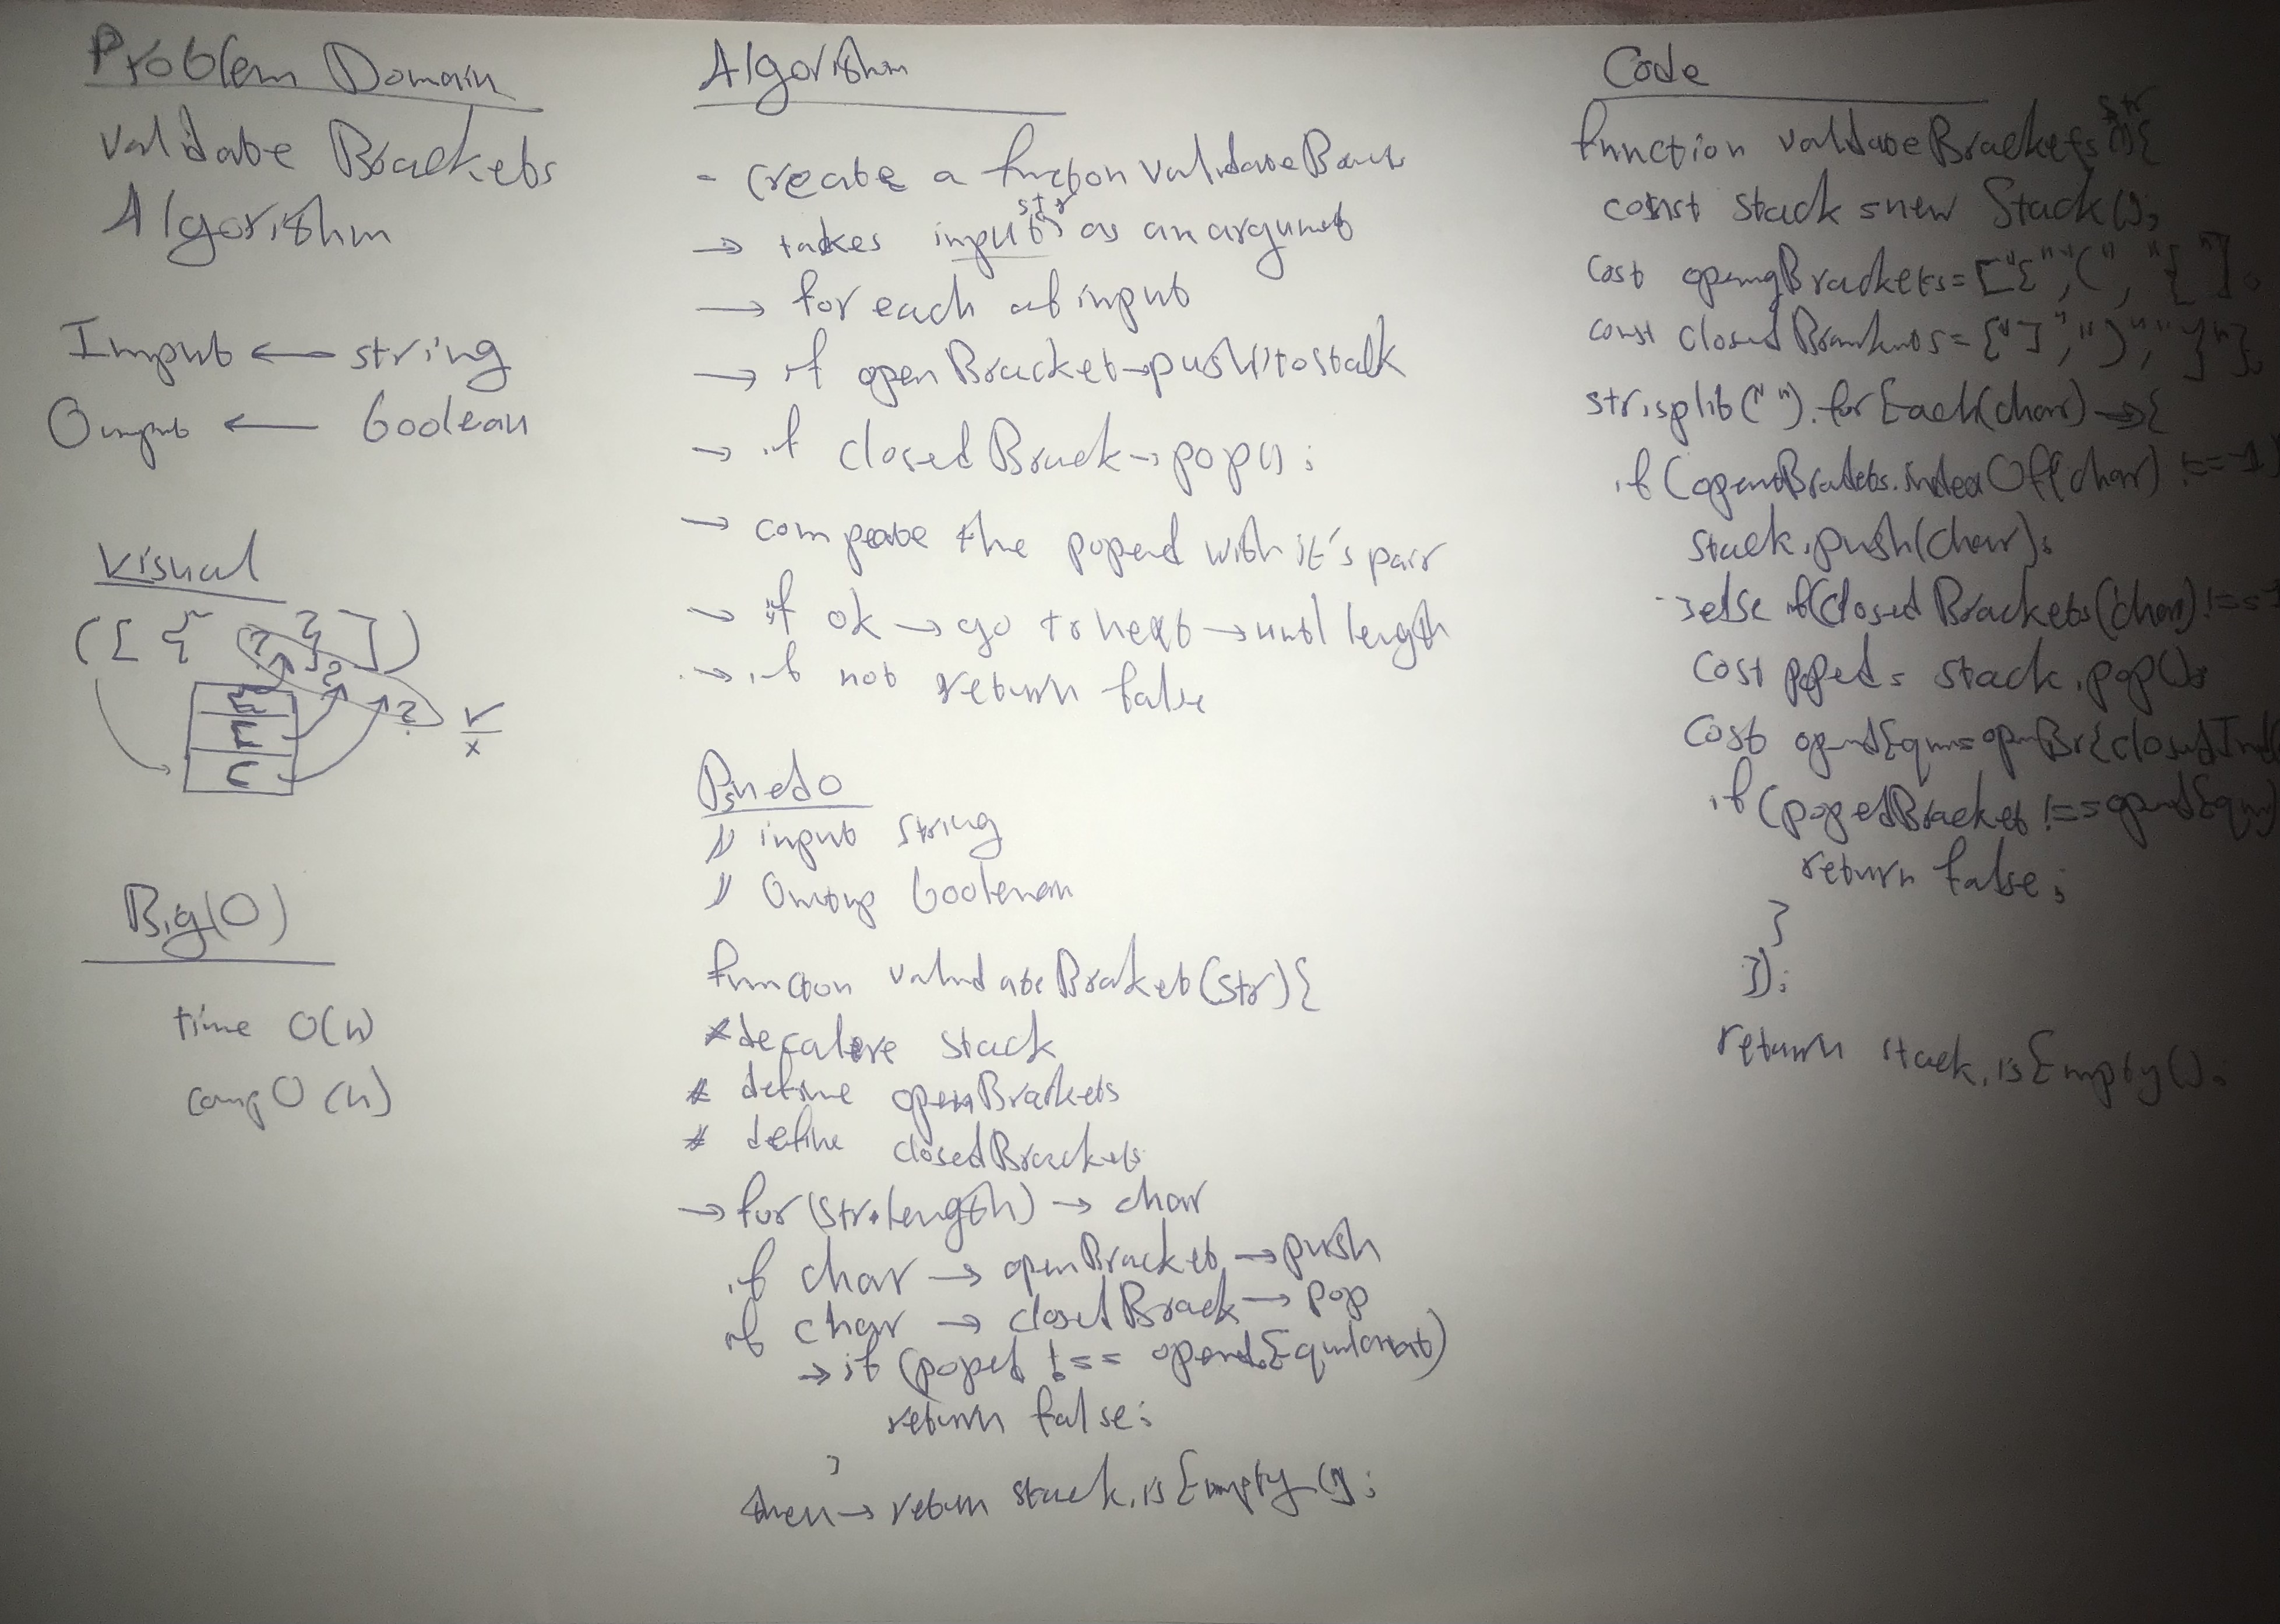 Problem Domain
Validate Brackets
Algorithm
Input ← string
Output ← boolean
Visual
([{ }])
?
?
?
{
[
(
√
x
Big(O)
time O(n)
comp O(n)
Algorithm
- create a function validateBrack
str
→ takes input as an argument
→ for each of input
→ if openBracket → push it to stalk
→ if closedBrack → pop();
→ compare the poped with it's pair
→ if ok → go to next → until length
→ if not return false
Psuedo
// input string
// Output boolenan
function validateBraket(str){
* decalere stack
* define openBrackets
* define closedBrackets
→ for(str.length) → char
if char → openBracket → push
if char → closedBrack → pop
→ if (poped !== opend Equilanat)
return false;
}
then → return stack.isEmpty();
Code
str
function validateBrackets(){
const stack = new Stack();
cost openigBrackets = ["[", "(", "{"];
const closedBrackets = ["]", ")", "}"];
str.split("").forEach(char) => {
if (opendBrakets.indexOf(char) !== -1)
stack.push(char);
}else if(closedBrackets(char) !==
cost poped = stack.pop();
cost opendEqu = openBr[closedInd
if (popedBracket !== opendEqu)
return false;
}
});
return stack.isEmpty().